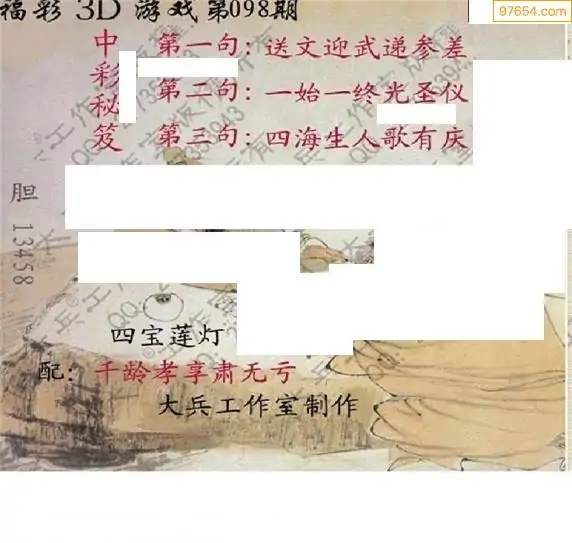 福彩 3D 游戏 第098期
97654.com
中彩秘笈
第一句：送文迎武递参差
第二句：一始一终光圣仪
第三句：四海生人歌有庆
胆 13458
四宝莲灯
配：千龄孝享肃无亏
大兵工作室制作